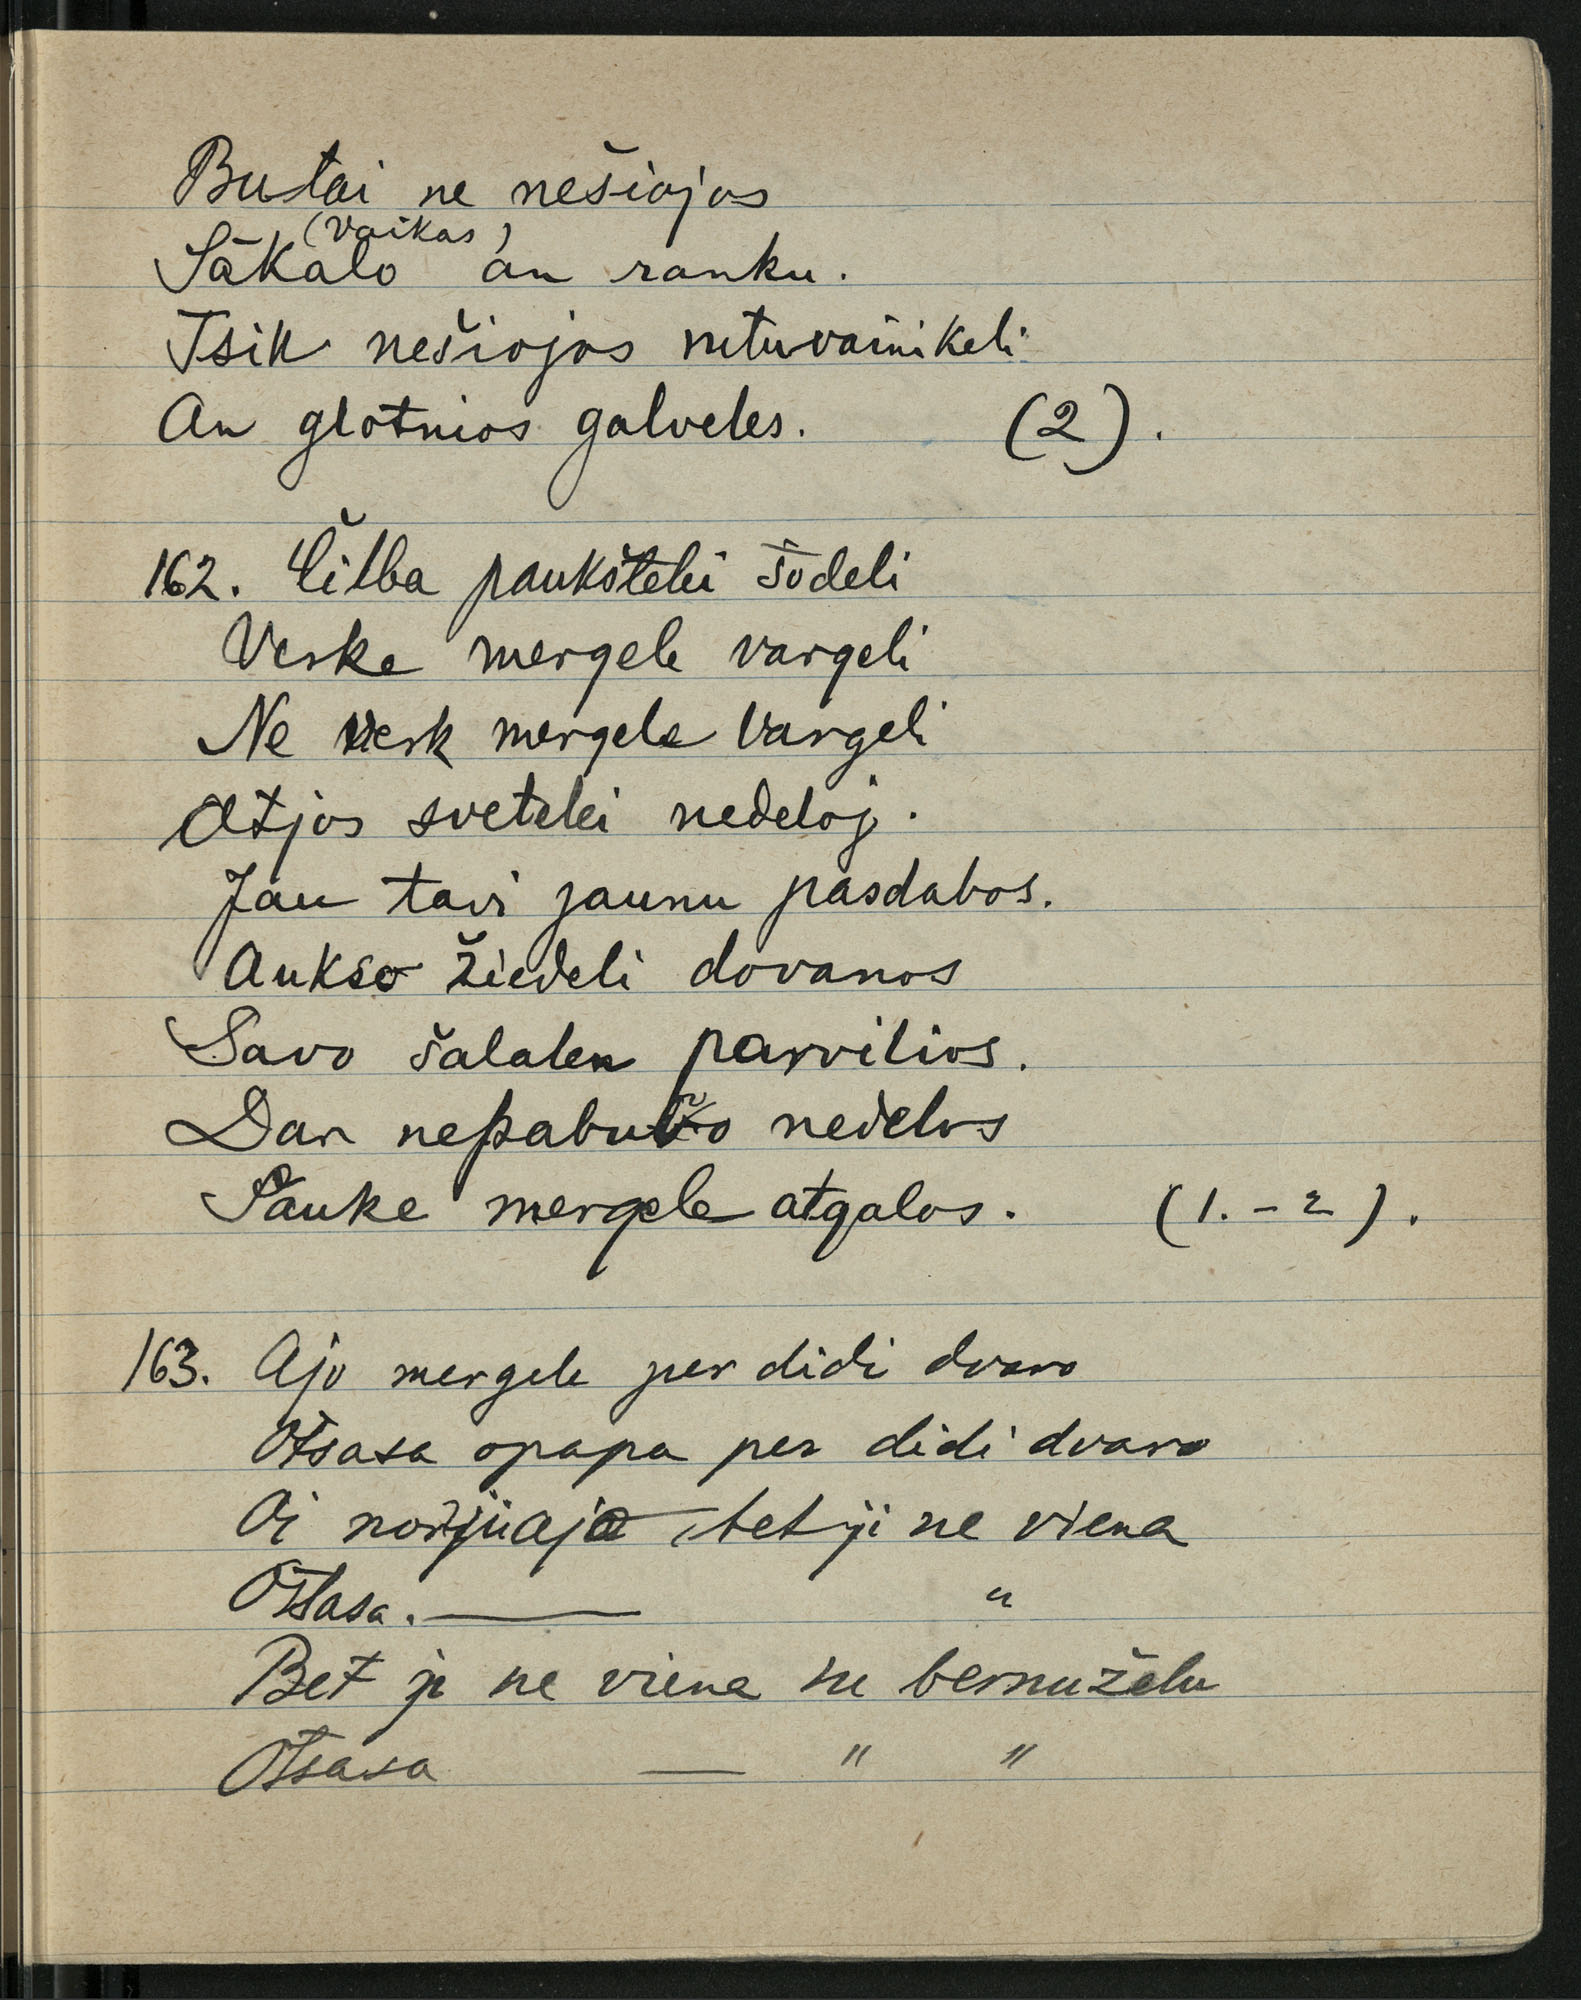 Butai ne nešiojos
(vaikas)
Sākalo an ranku.
Tsik nešiojos rutuvainikeli
An glotnios galveles. (2).
162. Čilba paukštelei šodeli
Verke mergele vargeli
Ne verk mergele vargeli
Atjos svetelei nedeloj.
Jau tavi jaunu pasdabos.
Aukso žiedeli dovanos
Savo šalalen parvilios.
Dar nepabuvo nedelos
Šauke mergele atgalos. (1. - 2).
163. Ajo mergele per didi dvaro
Otsasa opapa per didi dvaro
Oi bet ji ne viena
Otsasa. — "
Bet ji ne viena su bernuželu
Otsasa — " "